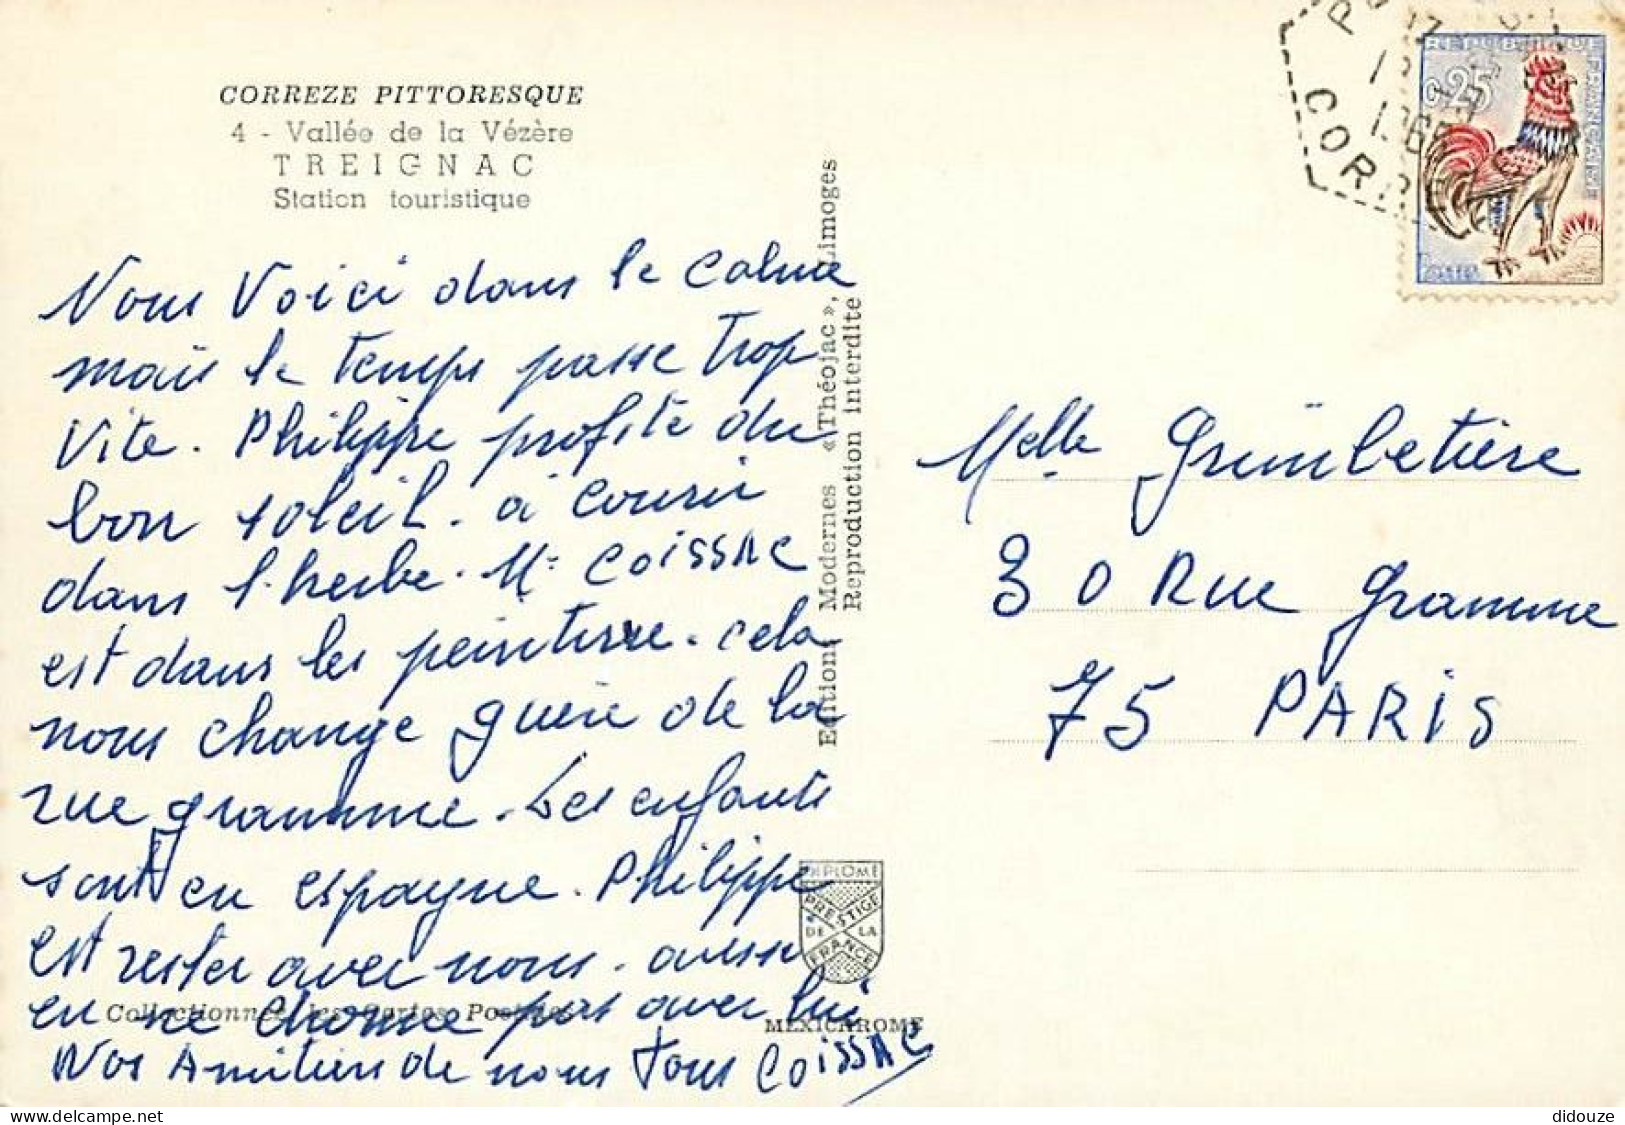 CORREZE PITTORESQUE
4 - Vallée de la Vézère
TREIGNAC
Station touristique
Nous Voici dans le calme
mais le temps passe trop
Vite. Philippe profite du
bon soleil. à courir
dans l'herbe. Mr COISSAC
est dans les peinture. cela
nous change guère de la
rue gramme. Les enfants
sont en espagne. Philippe
est rester avec nous. aussi
en ne chome pas avec lui
Nos Amitiers de nous Tous COISSAC
Collectionnez les Cartes Postales
Editions Modernes «Théojac», Limoges
Reproduction interdite
DIPLOME
PRESTIGE
DE LA
FRANCE
MEXICHROME
REPUBLIQUE FRANÇAISE
0,25
CORRE
Melle Grimbetière
30 Rue gramme
75 PARIS
didouze